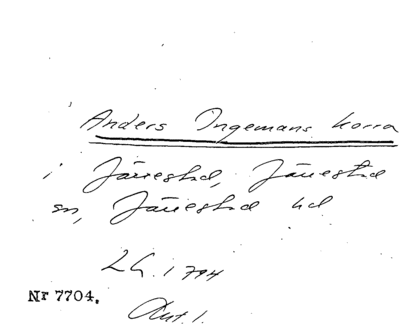 Anders Ingemans korra
i Järrestad, Järrestad
sn, Järrestad hd
LG. 1794
Nr 7704.
Aut. 1.